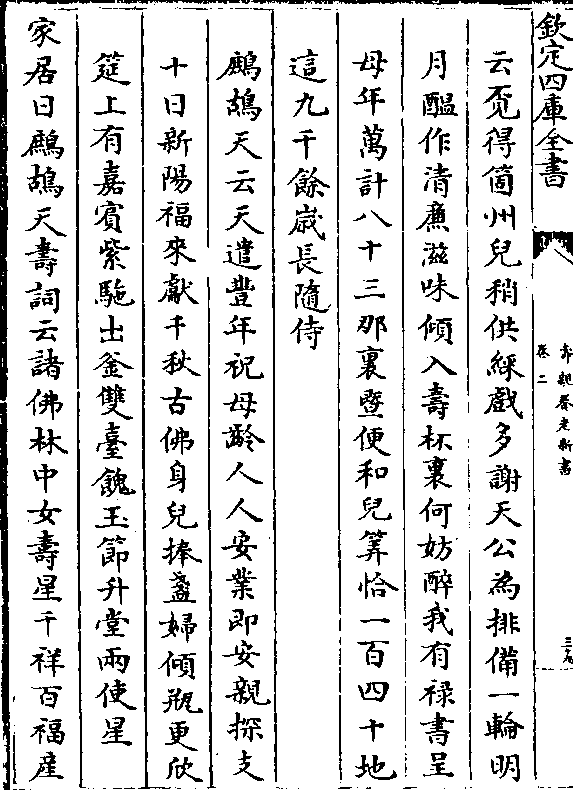 欽定四庫全書
壽親養老新書
卷二
云覔得箇州兒稍供綵戲多謝天公為排備一輪明
月醖作清亷滋味傾入壽杯裏何妨醉我有禄書呈
母年萬計八十三那裏暨便和兒筭恰一百四十地
這九千餘嵗長隨侍
鷓鴣天云天遣豐年祝母齡人人安業即安親探支
十日新陽福來獻千秋古佛身兒捧盞婦傾瓶更欣
筵上有嘉賓紫駞出釜雙臺餽玉節升堂兩使星
家居日鷓鴣天壽詞云諸佛林中女壽星千祥百福産